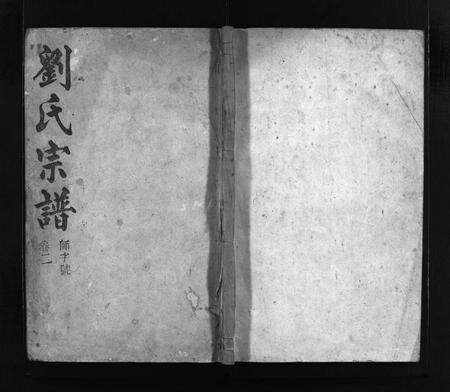 劉氏宗譜
卷二
師字號